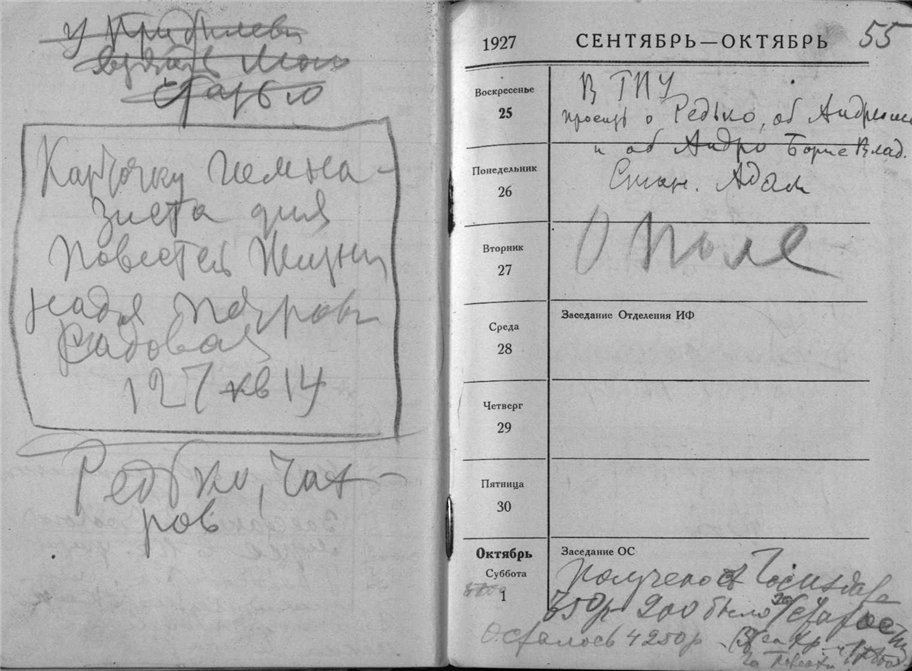 статью
Карточку гимна-
зиста для
Повестей Жизни
Надя
Садовая
127 кв 14
Редько, Чах-
ров
1927 СЕНТЯБРЬ—ОКТЯБРЬ 55
Воскресенье
25
В ГПУ
просить о Редько, об
и об Андро Борисе Влад.
Понедельник
26
Адам
Вторник
27
О Поле
Среда
28
Заседание Отделения ИФ
Четверг
29
Пятница
30
Октябрь
Суббота
1
Заседание ОС
Получено от Госиздата
750 р 200 было за
Осталось 4250 р